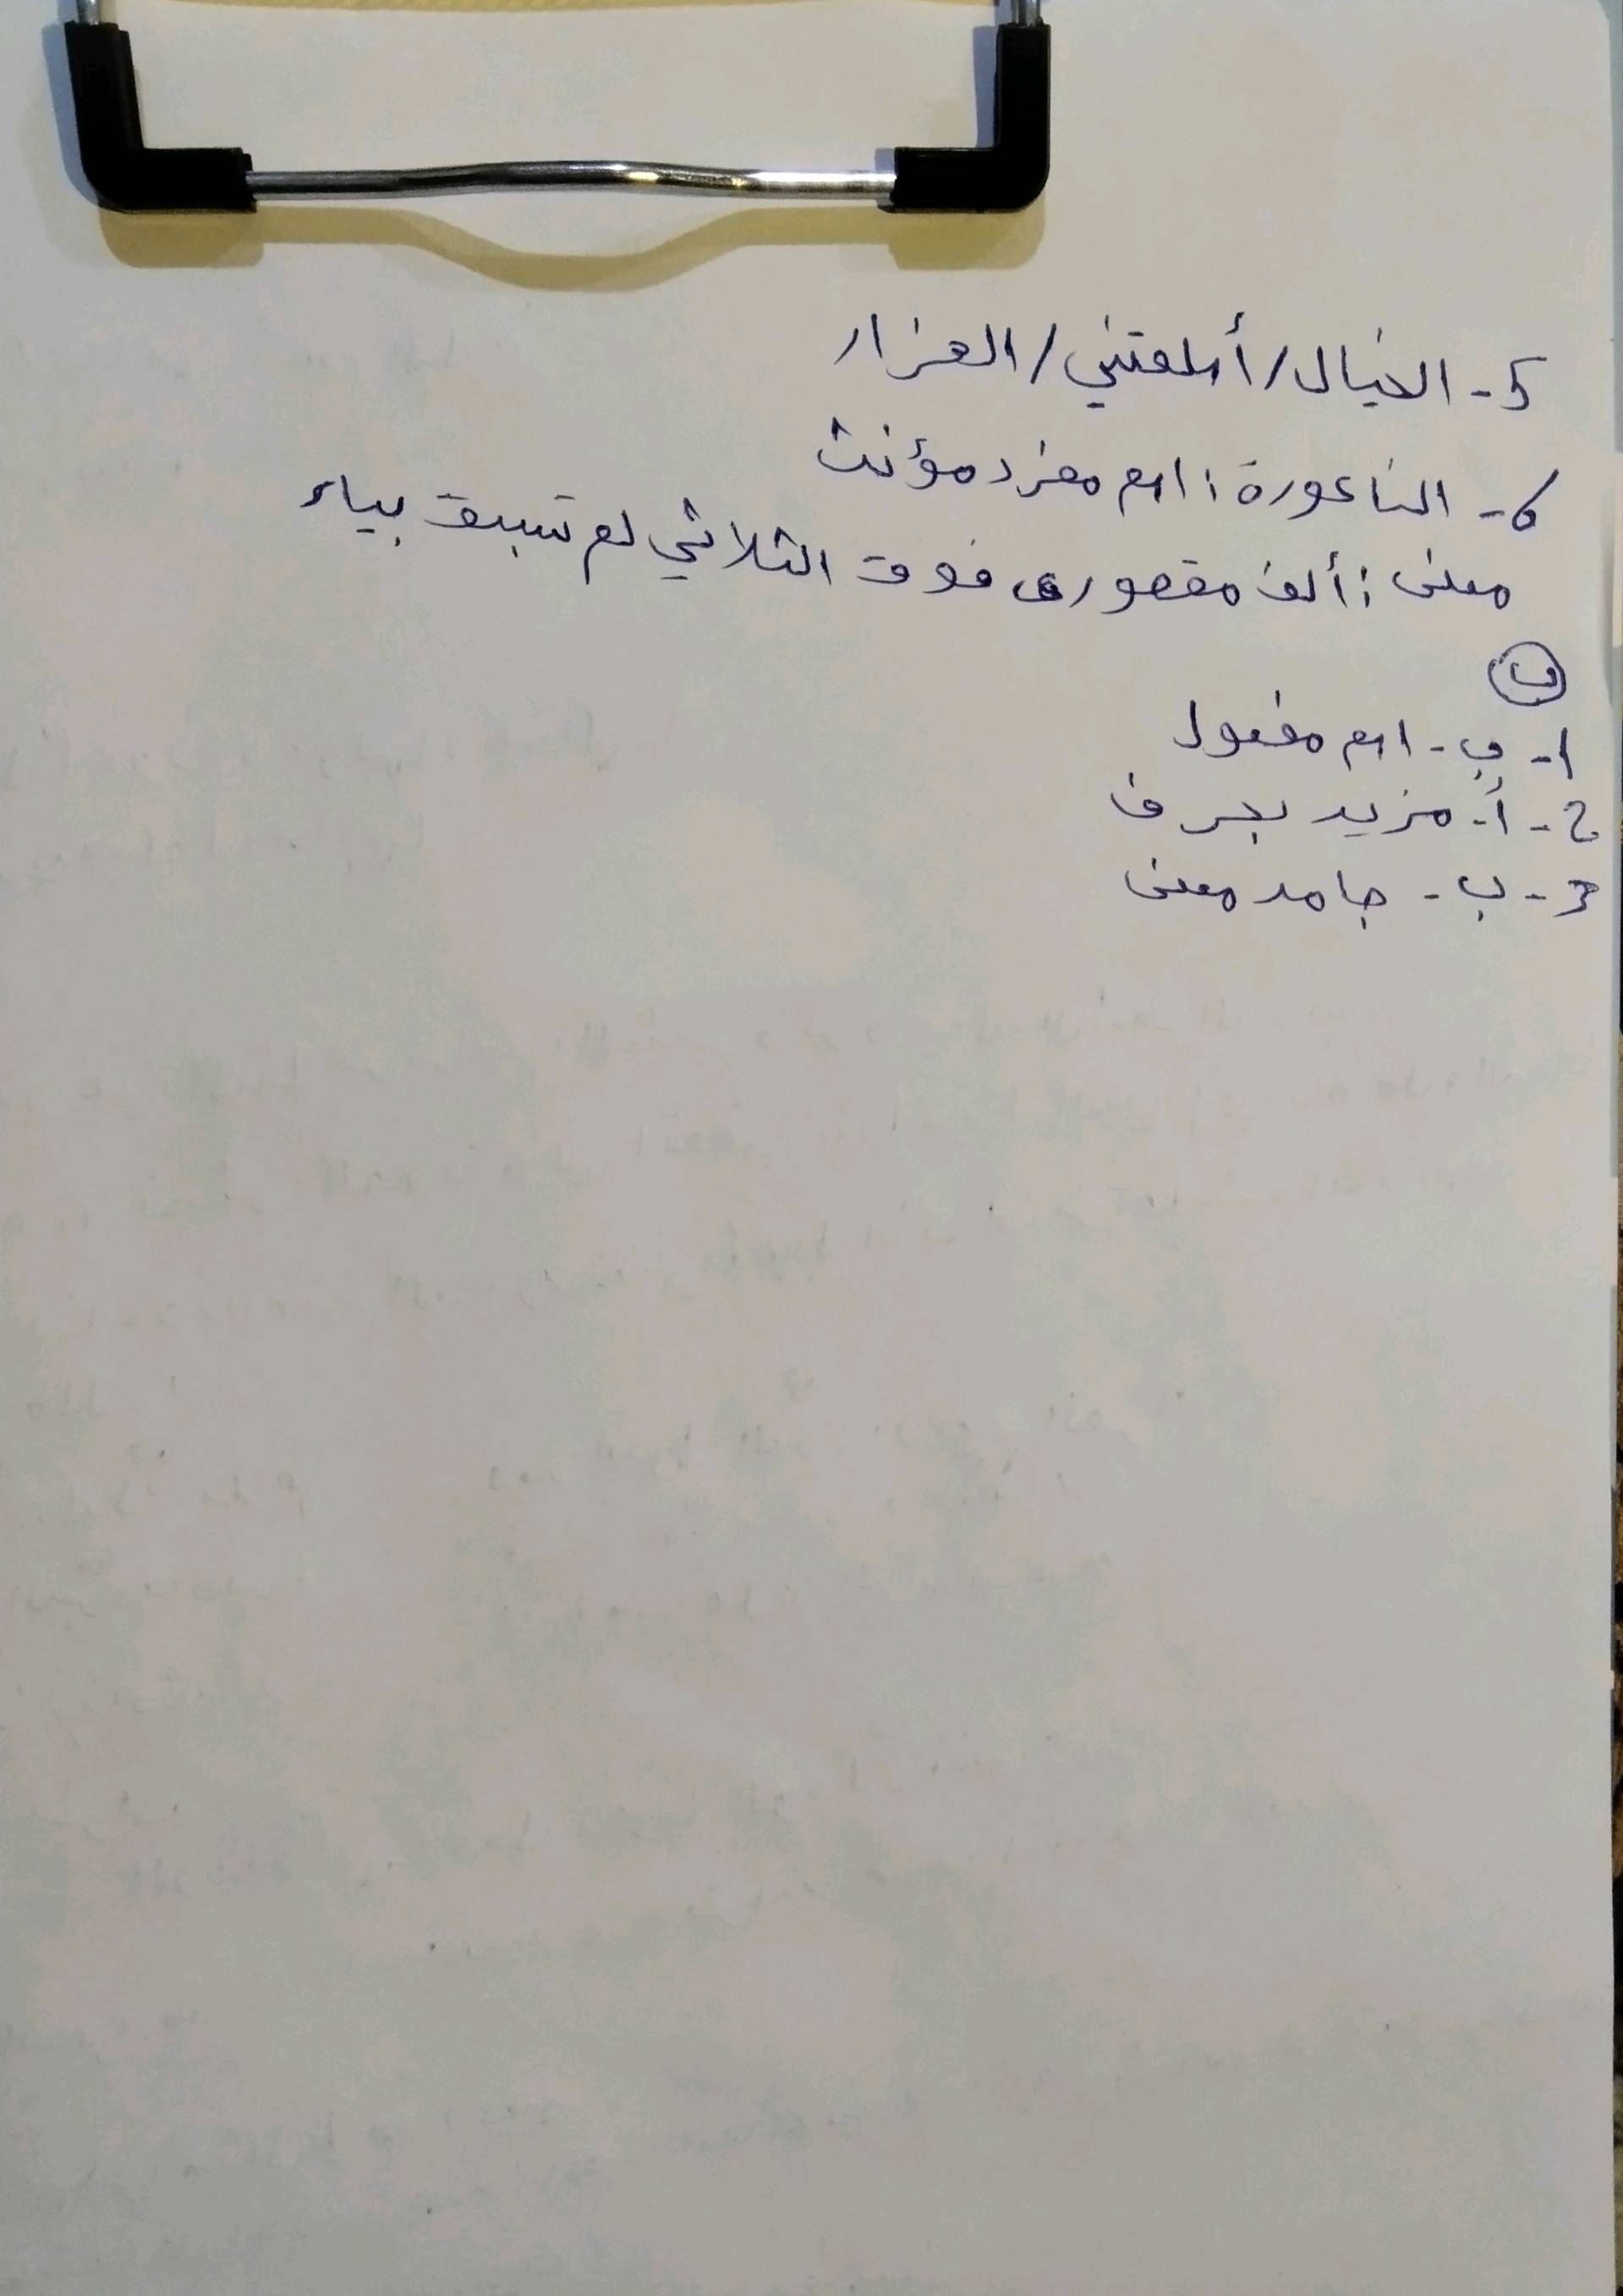 5- الخيال/أسلمتني/الفرار
6- الناعورة: اسم مفرد مؤنث
معنى: ألف مقصورى فوق الثلاثي لم تسبق بياء
ب
1- ب- اسم مفعول
2- أ- مزيد بحرف
3- ب- جامد معنى